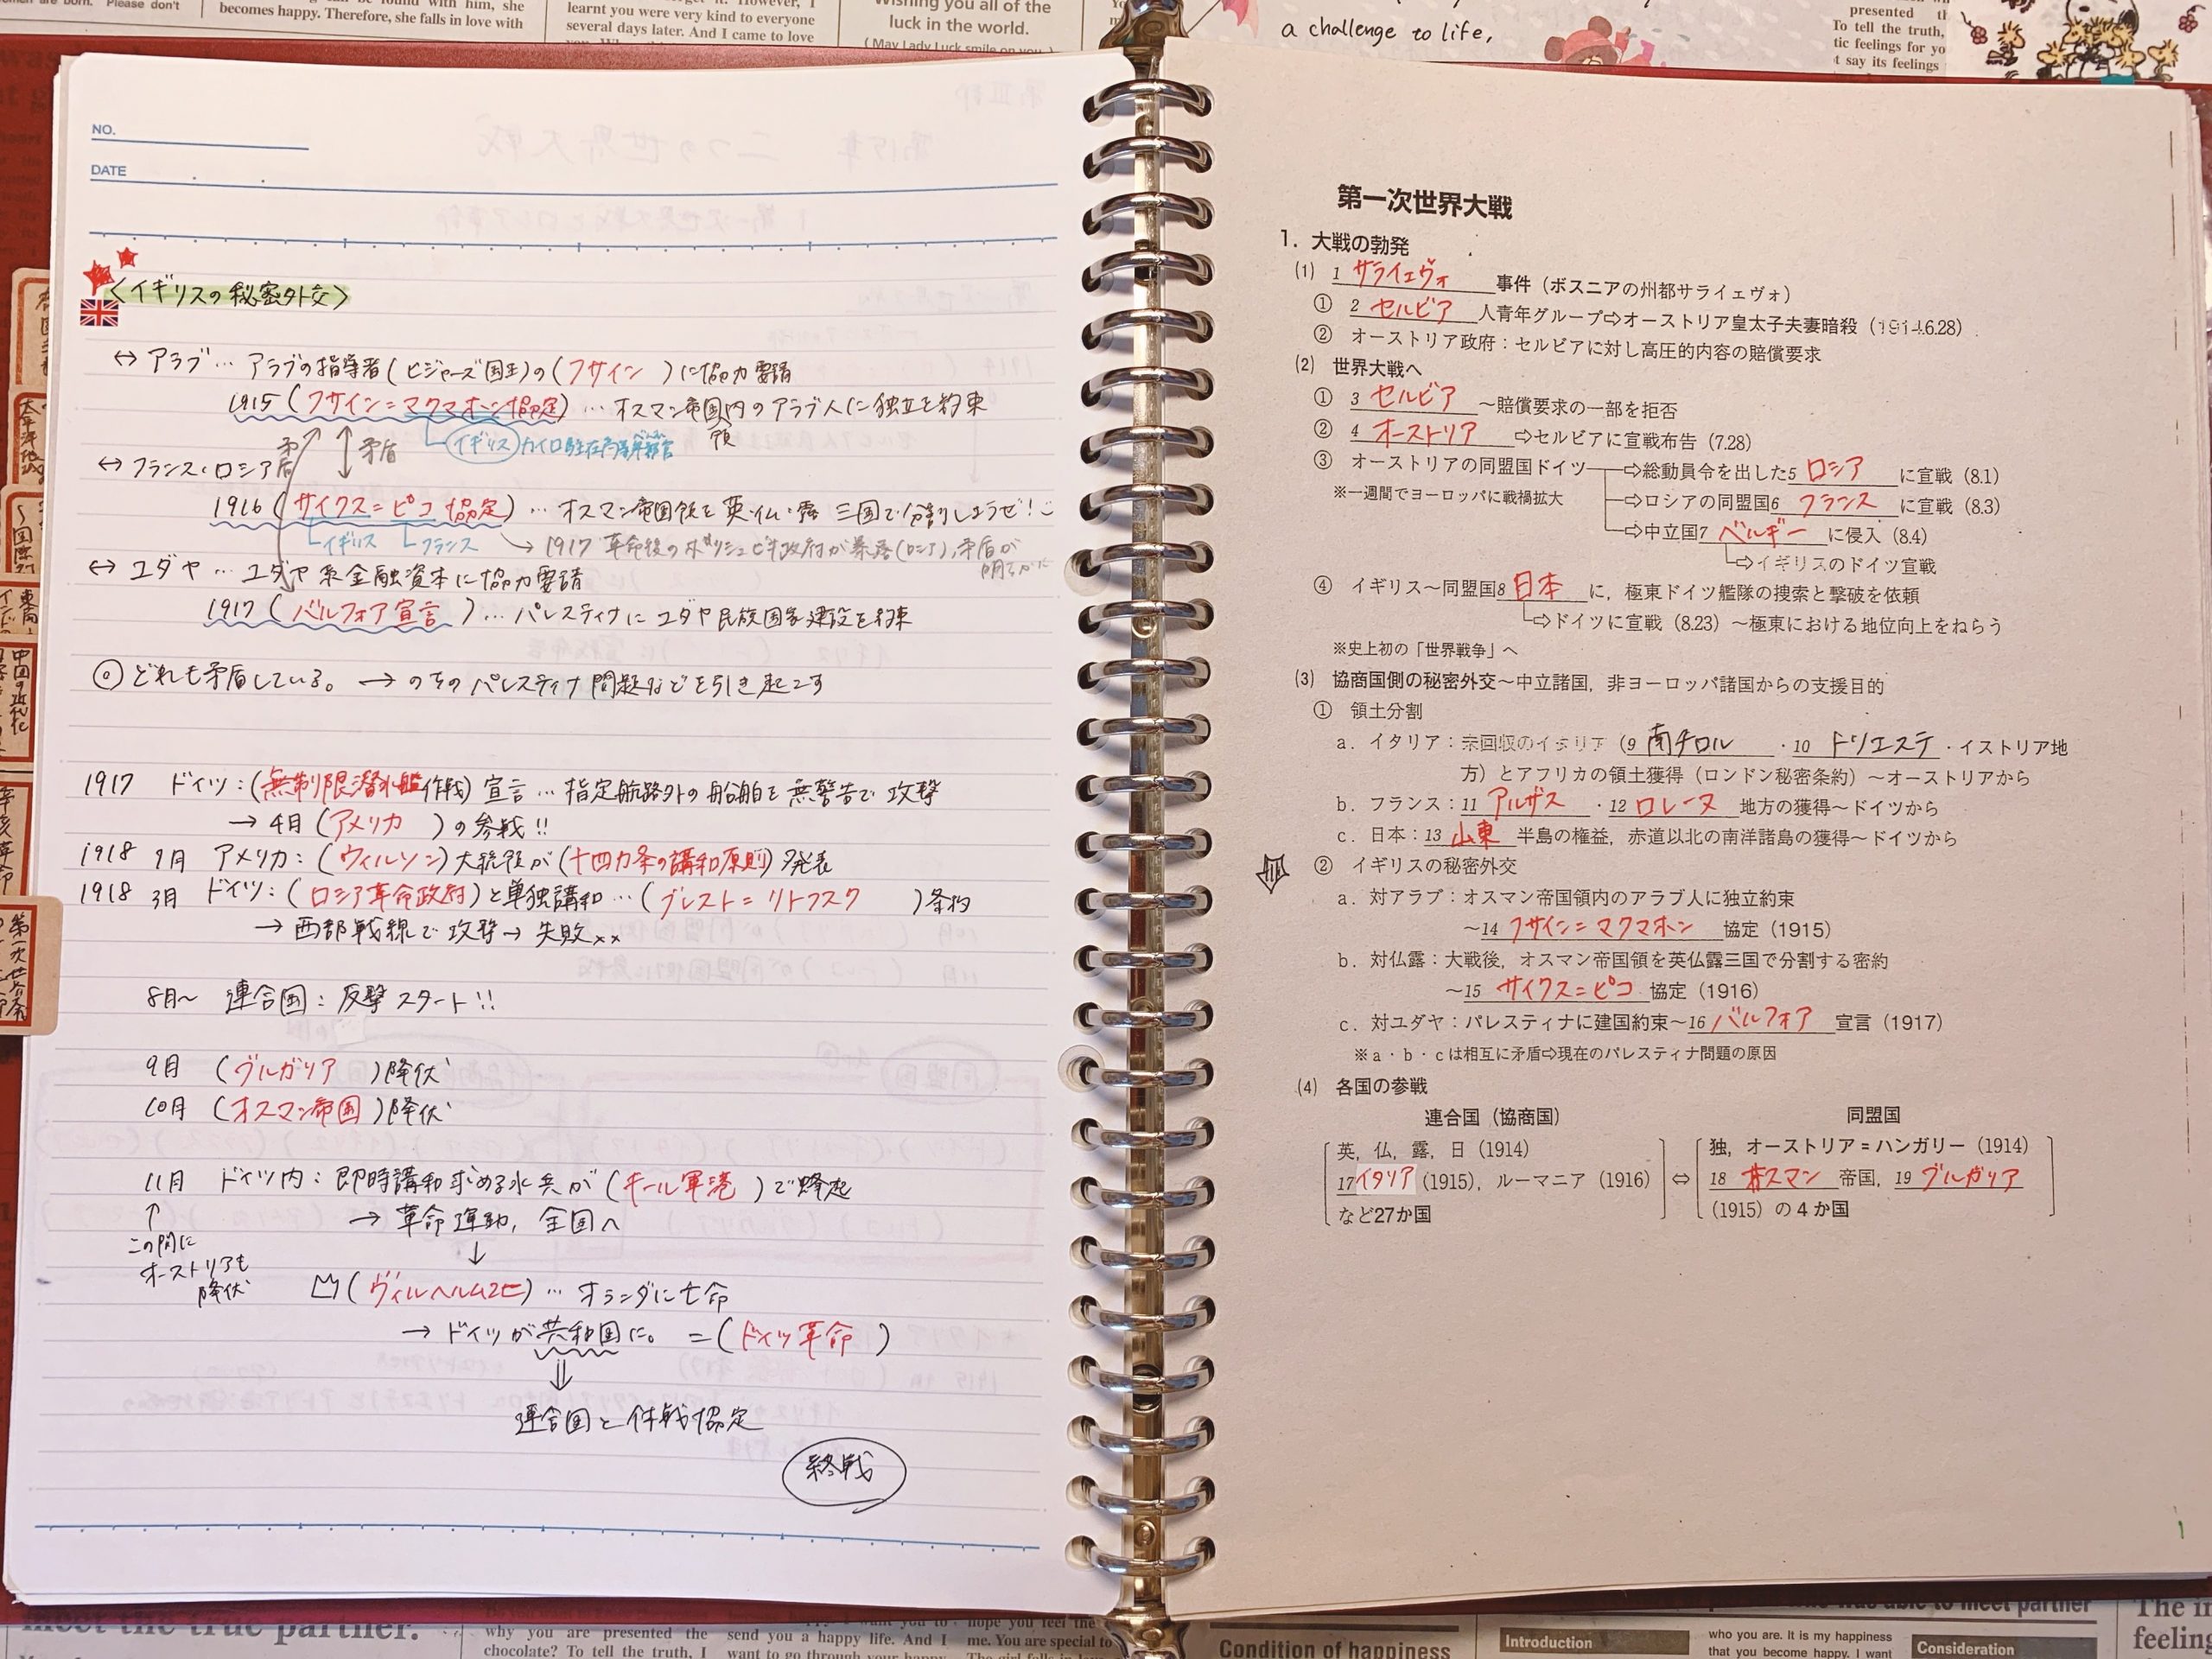 becomes happy. Therefore, she falls in love with
learnt you were very kind to everyone
several days later. And I came to love
luck in the world.
(May Lady Luck smile on you.)
a challenge to life,
presented
To tell the truth,
tic feelings for yo
t say its feelings
NO.
DATE
〈イギリスの秘密外交〉
↔ アラブ… アラブの指導者(ヒジャーズ国王)の(フサイン)に協力要請
1915(フサイン=マクマホン協定)… オスマン帝国内のアラブ人に独立を約束
領
矛盾
矛盾
イギリス カイロ駐在高等弁務官
↔ フランス・ロシア
1916(サイクス=ピコ協定)… オスマン帝国領を英・仏・露 三国で分割しようぜ!
イギリス フランス → 1917 革命後のボリシェビキ政府が暴露(ロシア), 矛盾が
明らかに
↔ ユダヤ… ユダヤ系金融資本に協力要請
1917(バルフォア宣言)… パレスティナにユダヤ民族国家建設を約束
◎どれも矛盾している。→ のちのパレスティナ問題などを引き起こす
1917 ドイツ:(無制限潜水艦作戦)宣言… 指定航路外の船舶を無警告で攻撃
→ 4月(アメリカ)の参戦!!
1918 1月 アメリカ:(ウィルソン)大統領が(十四カ条の講和原則)発表
1918 3月 ドイツ:(ロシア革命政府)と単独講和…(ブレスト=リトフスク)条約
→ 西部戦線で攻撃→ 失敗××
8月〜 連合国:反撃スタート!!
9月 (ブルガリア)降伏
10月 (オスマン帝国)降伏
11月 ドイツ内:即時講和求める水兵が(キール軍港)で蜂起
→ 革命運動, 全国へ
↑
この間に
オーストリアも
降伏
↓
(ヴィルヘルム2世)… オランダに亡命
→ ドイツが共和国に。=(ドイツ革命)
⇓
連合国と休戦協定
終戦
第一次世界大戦
1. 大戦の勃発
(1) 1 サライェヴォ 事件(ボスニアの州都サライェヴォ)
① 2 セルビア 人青年グループ⇨オーストリア皇太子夫妻暗殺(1914.6.28)
② オーストリア政府:セルビアに対し高圧的内容の賠償要求
(2) 世界大戦へ
① 3 セルビア 〜賠償要求の一部を拒否
② 4 オーストリア ⇨セルビアに宣戦布告(7.28)
③ オーストリアの同盟国ドイツ ⇨総動員令を出した5 ロシア に宣戦(8.1)
※一週間でヨーロッパに戦禍拡大 ⇨ロシアの同盟国6 フランス に宣戦(8.3)
⇨中立国7 ベルギー に侵入(8.4)
⇨イギリスのドイツ宣戦
④ イギリス〜同盟国8 日本 に,極東ドイツ艦隊の捜索と撃破を依頼
⇨ドイツに宣戦(8.23)〜極東における地位向上をねらう
※史上初の「世界戦争」へ
(3) 協商国側の秘密外交〜中立諸国,非ヨーロッパ諸国からの支援目的
① 領土分割
a. イタリア:未回収のイタリア(9 南チロル ・10 トリエステ ・イストリア地
方)とアフリカの領土獲得(ロンドン秘密条約)〜オーストリアから
b. フランス:11 アルザス ・12 ロレーヌ 地方の獲得〜ドイツから
c. 日本:13 山東 半島の権益,赤道以北の南洋諸島の獲得〜ドイツから
② イギリスの秘密外交
a. 対アラブ:オスマン帝国領内のアラブ人に独立約束
〜14 フサイン=マクマホン 協定(1915)
b. 対仏露:大戦後,オスマン帝国領を英仏露三国で分割する密約
〜15 サイクス=ピコ 協定(1916)
c. 対ユダヤ:パレスティナに建国約束〜16 バルフォア 宣言(1917)
※a・b・cは相互に矛盾⇨現在のパレスティナ問題の原因
(4) 各国の参戦
連合国(協商国) 同盟国
英,仏,露,日(1914) 独,オーストリア=ハンガリー(1914)
17 イタリア (1915),ルーマニア(1916) ⇔ 18 オスマン 帝国,19 ブルガリア
など27か国 (1915)の4か国
1
meet the true partner.
why you are presented the
chocolate? To tell the truth, I
send you a happy life. And I
want to go through your happy
hope you feel the
me. You are special to
Condition of happiness
Introduction
who you are. It is my happiness
that you become happy. I want
Consideration
The in
feeling